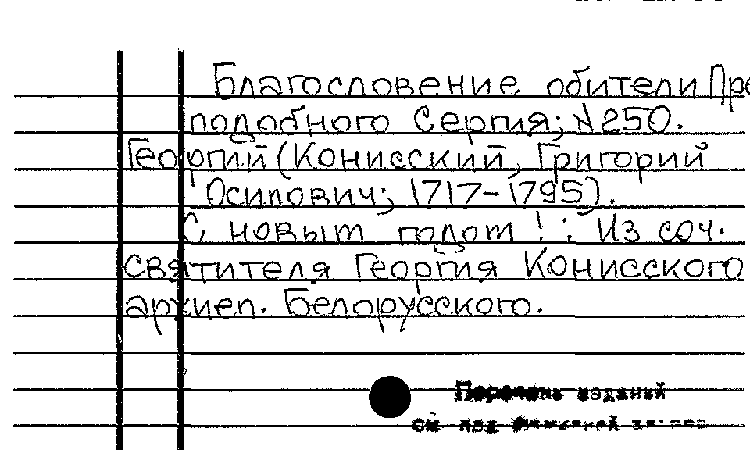 Благословение обители Пре
подобного Сергия; №250.
Георгий (Конисский, Григорий
Осипович; 1717-1795).
С новым годом!: Из соч.
святителя Георгия Конисского
архиеп. Белорусского.
Перечень изданий
см. под